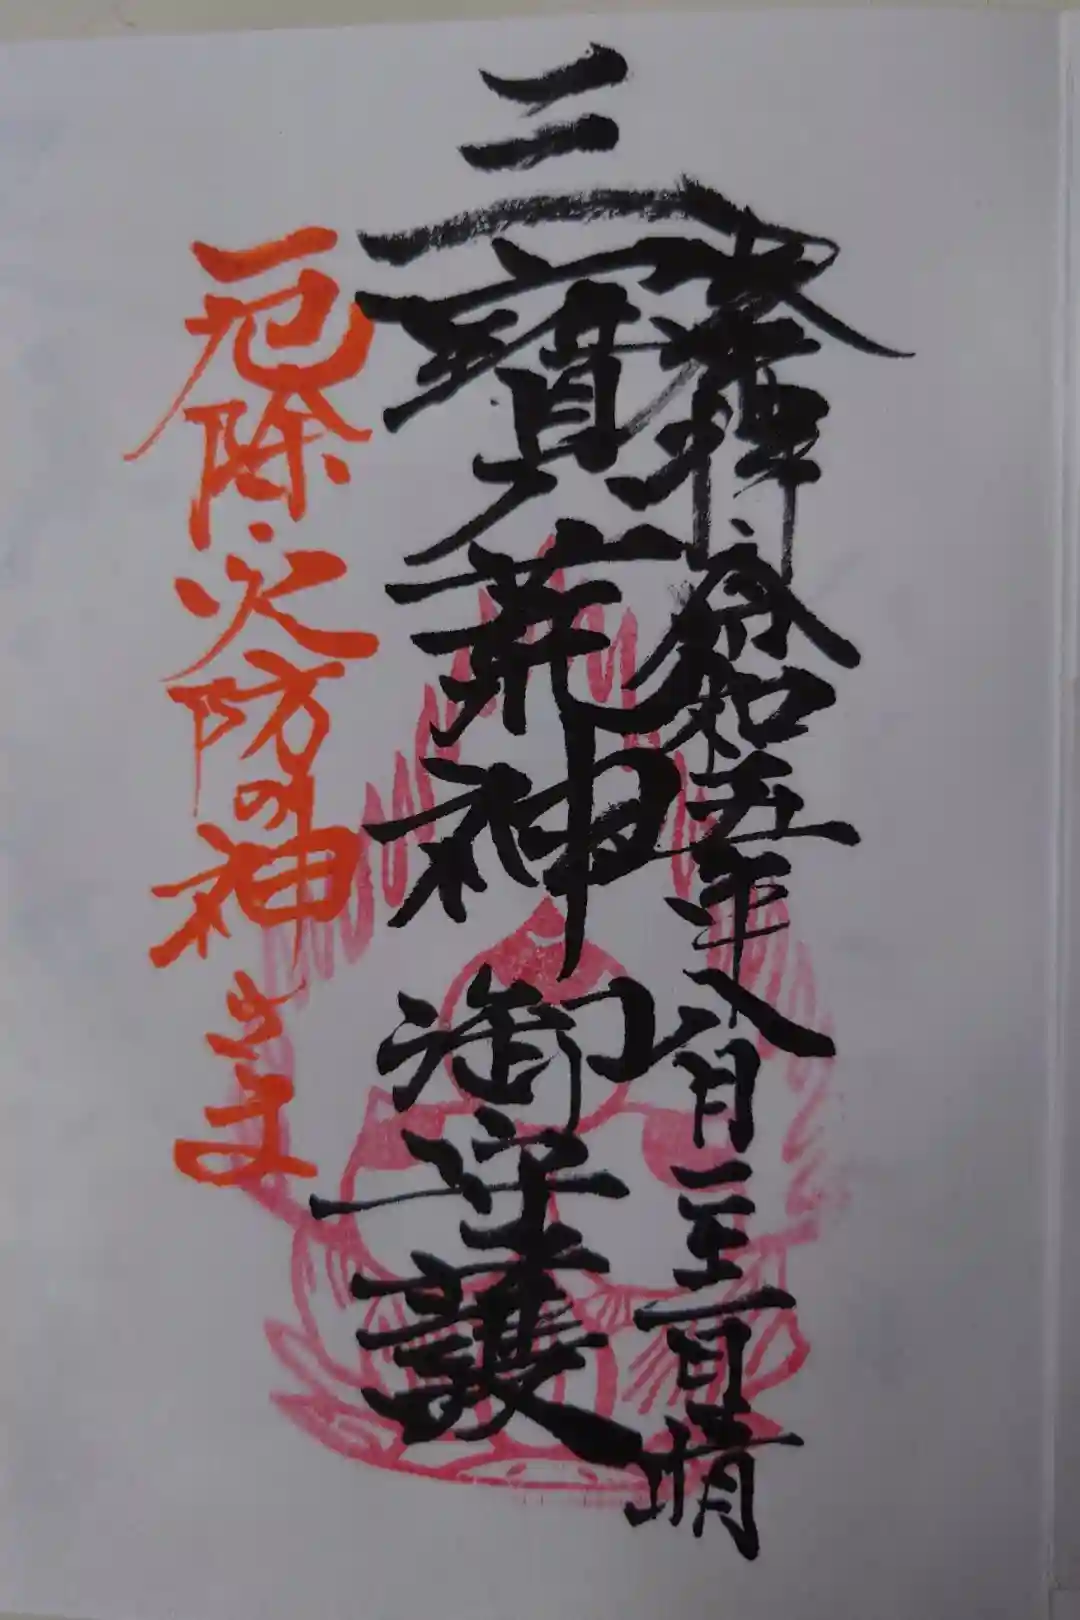 奉拝 令和五年八月二十一日晴
三寳荒神御守護
厄除・火防の神さま